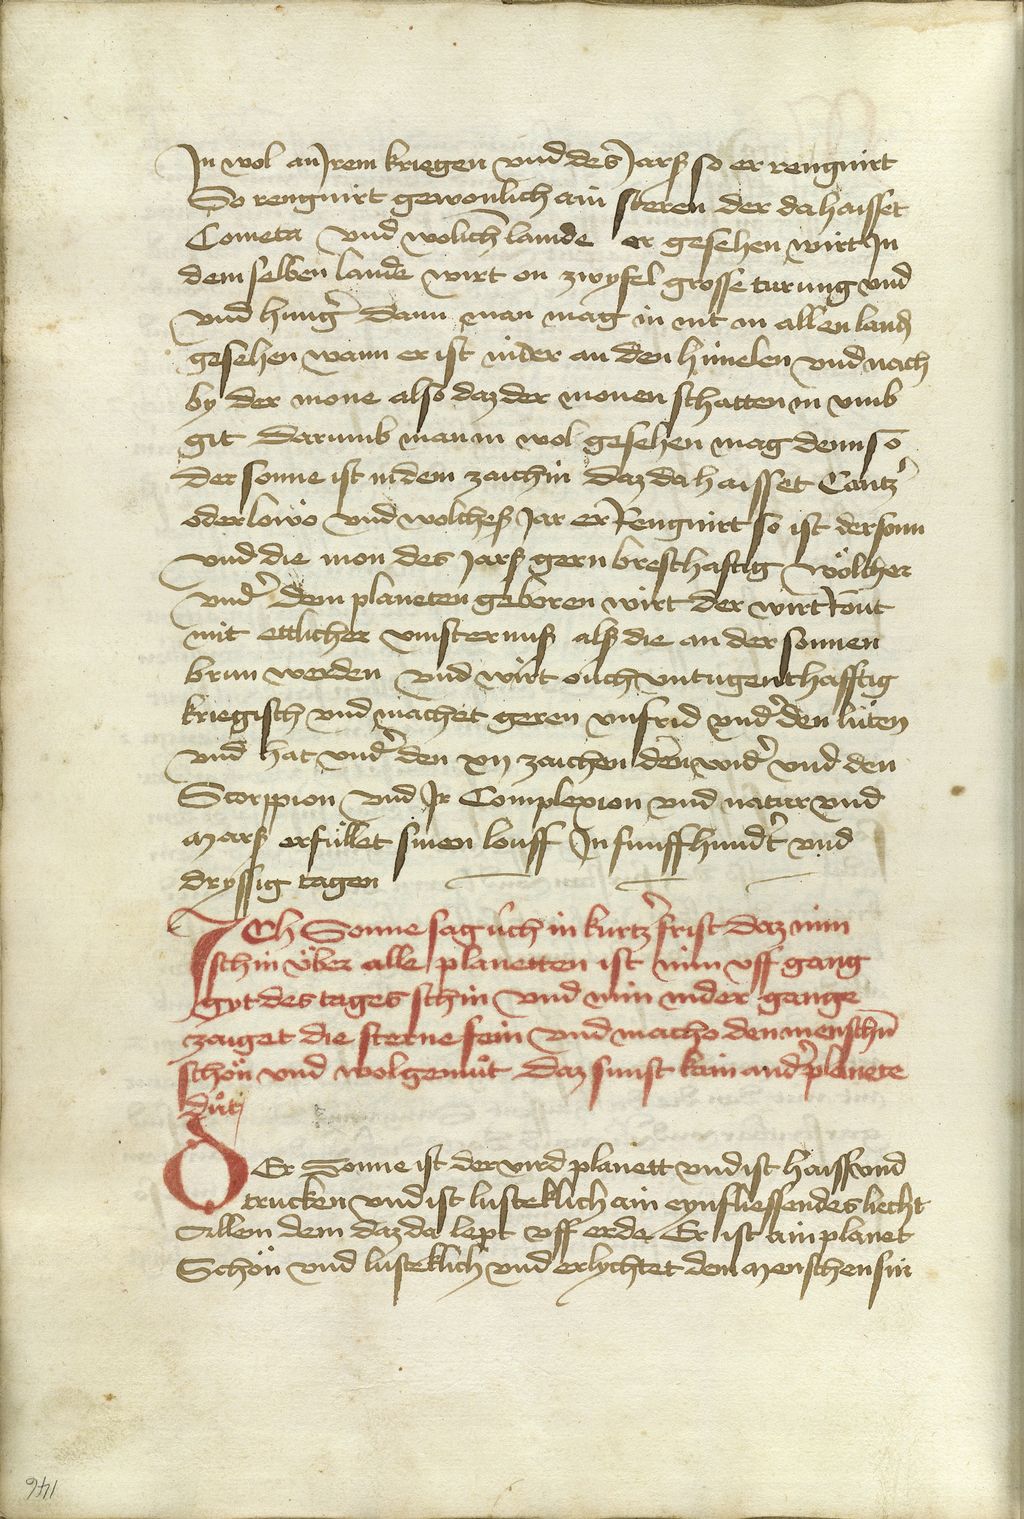 In wol an Irem kriegen vnd des Jarß so er rengnirt
So rengnirt gewonlich ain steren der da haisset
Cometa vnd wolichem lannde er gesehen wirt In
dem selben lande wirt on zwyfel grosse turung vnd
vnd hung̉ dann man mag in nit in allen land
gesehen wann er ist nider an den himelen vnd nach
by der mone also daz der monen schatten in vmb
git darumb man in wol gesehen mag denn so
der sonne ist in dem zaichin daz da haisset Cantz̉
oder lowo vnd wolcheß Jar er Rengnirt so ist der sonn
vnd die mon des Jarß gern bresthaftig wölcher
vnd̉ dem planeten geboren wirt der wirt Rout
mit ettlicher vinsternuß alß die an der sonnen
brun werden vnd wirt ouch vntugenthafftig
kriegisch vnd machet geren vnfrid vnd̉ den lüten
vnd hat vnd̉ den xij zaichen den wid̉ vnd den
Scorppion vnd Ir Complexion vnd natur vnd
Marß erfüllet sinen louff In funffhund̉t vnd
dryssig tagen
Ich Sonne sag üch in kurtz̉ frist daz min
schin über alle planetten ist min vff gang
gyt des tages schin vnd min nider gange
zaiget die sterne fein vnd macho den menschn̄
schön vnd wolgemůt daz sunst kain and̉ planete
důt
Der Sonne ist der vird planett vnd ist haiss vnd
trucken vnd ist lusteklich ain eynfliessendes liecht
Allem dem daz da lept vff erde Er ist ain planet
Schön vnd lusteklich vnd erlychtet den menschen sin
146